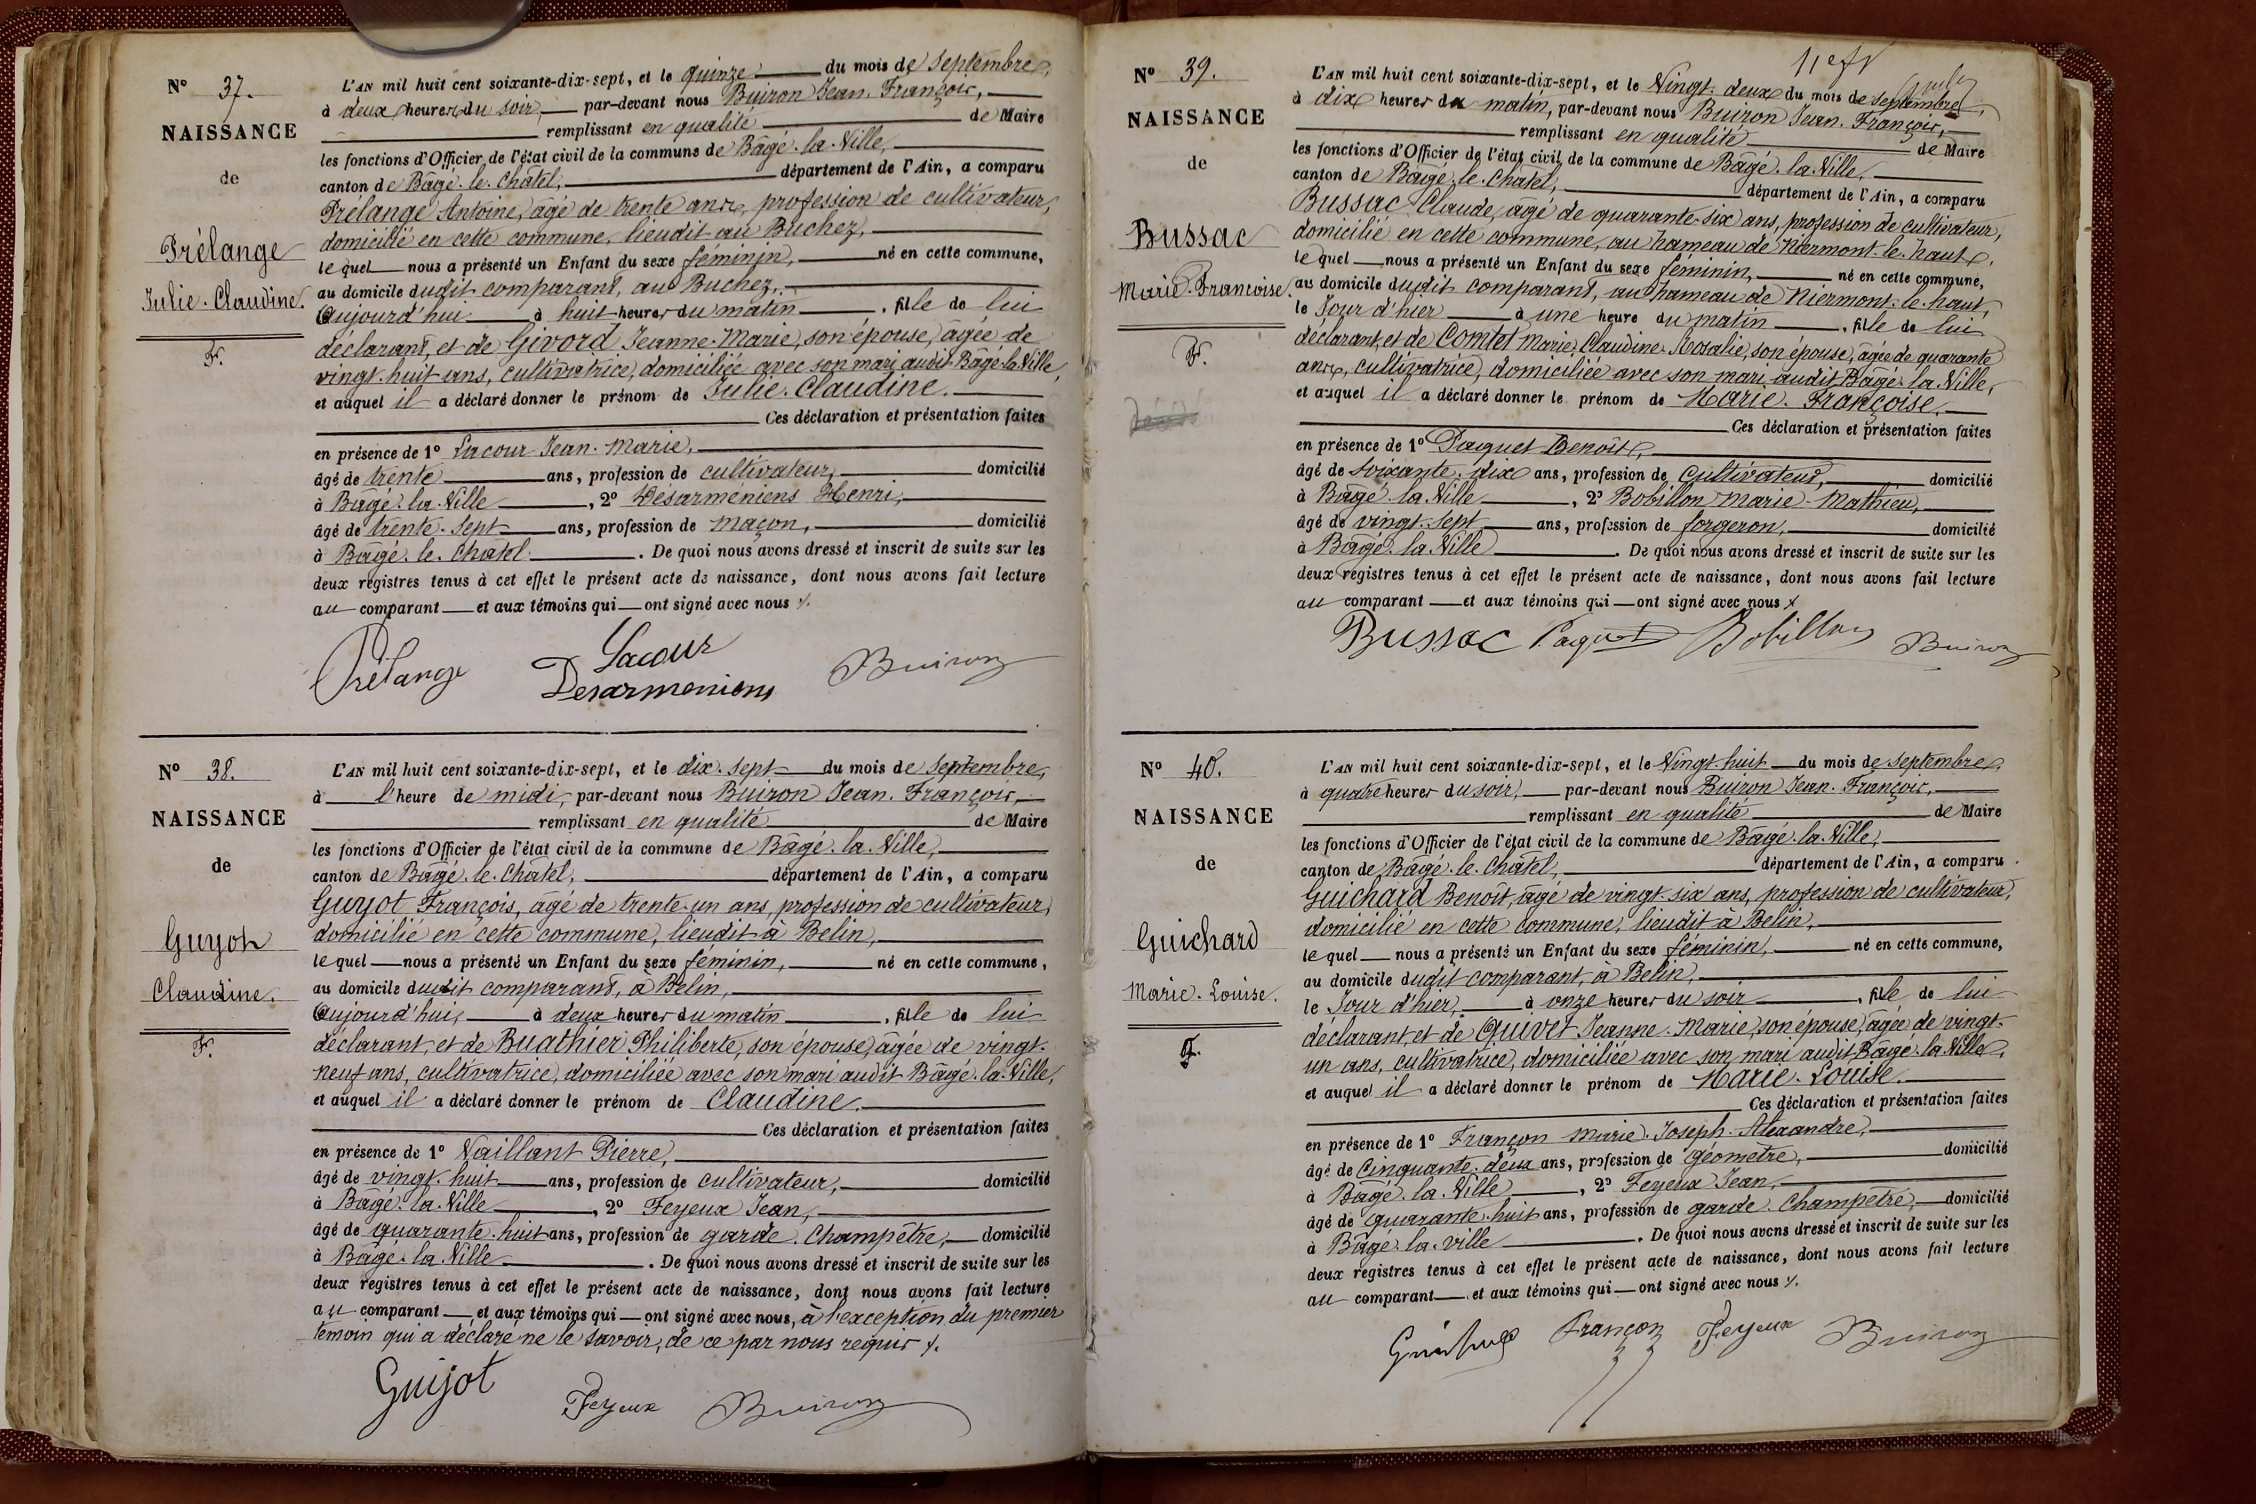 N° 37.
NAISSANCE
de
Prélange
Julie-Claudine.
F.
L'AN mil huit cent soixante-dix-sept, et le quinze du mois de septembre,
à deux heures du soir, par-devant nous Buiron Jean-François,
remplissant en qualité de Maire
les fonctions d'Officier de l'état civil de la commune de Bâgé-la-Ville,
canton de Bâgé-le-Châtel, département de l'Ain, a comparu
Prélange Antoine, âgé de trente ans, profession de cultivateur,
domicilié en cette commune, lieudit au Buchez,
lequel nous a présenté un Enfant du sexe féminin, né en cette commune,
au domicile dudit comparant, au Buchez,
Aujourd'hui à huit heures du matin, fille de lui
déclarant, et de Givord Jeanne-Marie, son épouse, âgée de
vingt-huit ans, cultivatrice, domiciliée avec son mari audit Bâgé-la-Ville,
et auquel il a déclaré donner le prénom de Julie-Claudine.
Ces déclaration et présentation faites
en présence de 1° Lacour Jean-Marie,
âgé de trente ans, profession de cultivateur, domicilié
à Bâgé-la-Ville, 2° Désarmeniens Henri,
âgé de trente-sept ans, profession de maçon, domicilié
à Bâgé-le-Châtel. De quoi nous avons dressé et inscrit de suite sur les
deux registres tenus à cet effet le présent acte de naissance, dont nous avons fait lecture
au comparant et aux témoins qui ont signé avec nous
Prélange Lacour Buiron
Desarmeniens
N° 38.
NAISSANCE
de
Guyot
Claudine.
F.
L'AN mil huit cent soixante-dix-sept, et le dix-sept du mois de septembre,
à l'heure de midi, par-devant nous Buiron Jean-François,
remplissant en qualité de Maire
les fonctions d'Officier de l'état civil de la commune de Bâgé-la-Ville,
canton de Bâgé-le-Châtel, département de l'Ain, a comparu
Guyot François, âgé de trente-un ans, profession de cultivateur,
domicilié en cette commune, lieudit à Belin,
lequel nous a présenté un Enfant du sexe féminin, né en cette commune,
au domicile dudit comparant, à Belin,
Aujourd'hui, à deux heures du matin, fille de lui
déclarant, et de Buathier Philiberte, son épouse, âgée de vingt-
neuf ans, cultivatrice, domiciliée avec son mari audit Bâgé-la-Ville,
et auquel il a déclaré donner le prénom de Claudine.
Ces déclaration et présentation faites
en présence de 1° Vaillant Pierre,
âgé de vingt-huit ans, profession de cultivateur, domicilié
à Bâgé-la-Ville, 2° Feyeux Jean,
âgé de quarante-huit ans, profession de garde-Champêtre, domicilié
à Bâgé-la-Ville. De quoi nous avons dressé et inscrit de suite sur les
deux registres tenus à cet effet le présent acte de naissance, dont nous avons fait lecture
au comparant et aux témoins qui ont signé avec nous, à l'exception du premier
témoin qui a déclaré ne le savoir, de ce par nous requis
Guijot Feyeux Buiron
N° 39.
NAISSANCE
de
Bussac
Marie-Françoise.
F.
L'AN mil huit cent soixante-dix-sept, et le Vingt-deux du mois de septembre,
à dix heures du matin, par-devant nous Buiron Jean-François,
remplissant en qualité de Maire
les fonctions d'Officier de l'état civil de la commune de Bâgé-la-Ville,
canton de Bâgé-le-Châtel, département de l'Ain, a comparu
Bussac Claude, âgé de quarante-six ans, profession de cultivateur,
domicilié en cette commune, au hameau de Niermont-le-haut,
lequel nous a présenté un Enfant du sexe féminin, né en cette commune,
au domicile dudit comparant, au hameau de Niermont-le-haut,
le Jour d'hier à une heure du matin, fille de lui
déclarant, et de Comtet Marie-Claudine-Rosalie, son épouse, âgée de quarante
ans, cultivatrice, domiciliée avec son mari audit Bâgé-la-Ville,
et auquel il a déclaré donner le prénom de Marie-Françoise.
Ces déclaration et présentation faites
en présence de 1° Paquet Benoît,
âgé de soixante-dix ans, profession de cultivateur, domicilié
à Bâgé-la-Ville, 2° Bobillon Marie-Mathieu,
âgé de vingt-sept ans, profession de forgeron, domicilié
à Bâgé-la-Ville. De quoi nous avons dressé et inscrit de suite sur les
deux registres tenus à cet effet le présent acte de naissance, dont nous avons fait lecture
au comparant et aux témoins qui ont signé avec nous
Bussac Paquet Bobillon Buiron
N° 40.
NAISSANCE
de
Guichard
Marie-Louise.
F.
L'AN mil huit cent soixante-dix-sept, et le Vingt-huit du mois de septembre,
à quatre heures du soir, par-devant nous Buiron Jean-François,
remplissant en qualité de Maire
les fonctions d'Officier de l'état civil de la commune de Bâgé-la-Ville,
canton de Bâgé-le-Châtel, département de l'Ain, a comparu
Guichard Benoît, âgé de vingt-six ans, profession de cultivateur,
domicilié en cette commune, lieudit à Belin,
lequel nous a présenté un Enfant du sexe féminin, né en cette commune,
au domicile dudit comparant, à Belin,
le Jour d'hier, à onze heures du soir, fille de lui
déclarant, et de Quivet Jeanne-Marie, son épouse, âgée de vingt-
un ans, cultivatrice, domiciliée avec son mari audit Bâgé-la-Ville,
et auquel il a déclaré donner le prénom de Marie-Louise.
Ces déclaration et présentation faites
en présence de 1° Françon Marie-Joseph-Alexandre,
âgé de Cinquante-deux ans, profession de géomètre, domicilié
à Bâgé-la-Ville, 2° Feyeux Jean,
âgé de quarante-huit ans, profession de garde-Champêtre, domicilié
à Bâgé-la-ville. De quoi nous avons dressé et inscrit de suite sur les
deux registres tenus à cet effet le présent acte de naissance, dont nous avons fait lecture
au comparant et aux témoins qui ont signé avec nous
Françon Feyeux Buiron